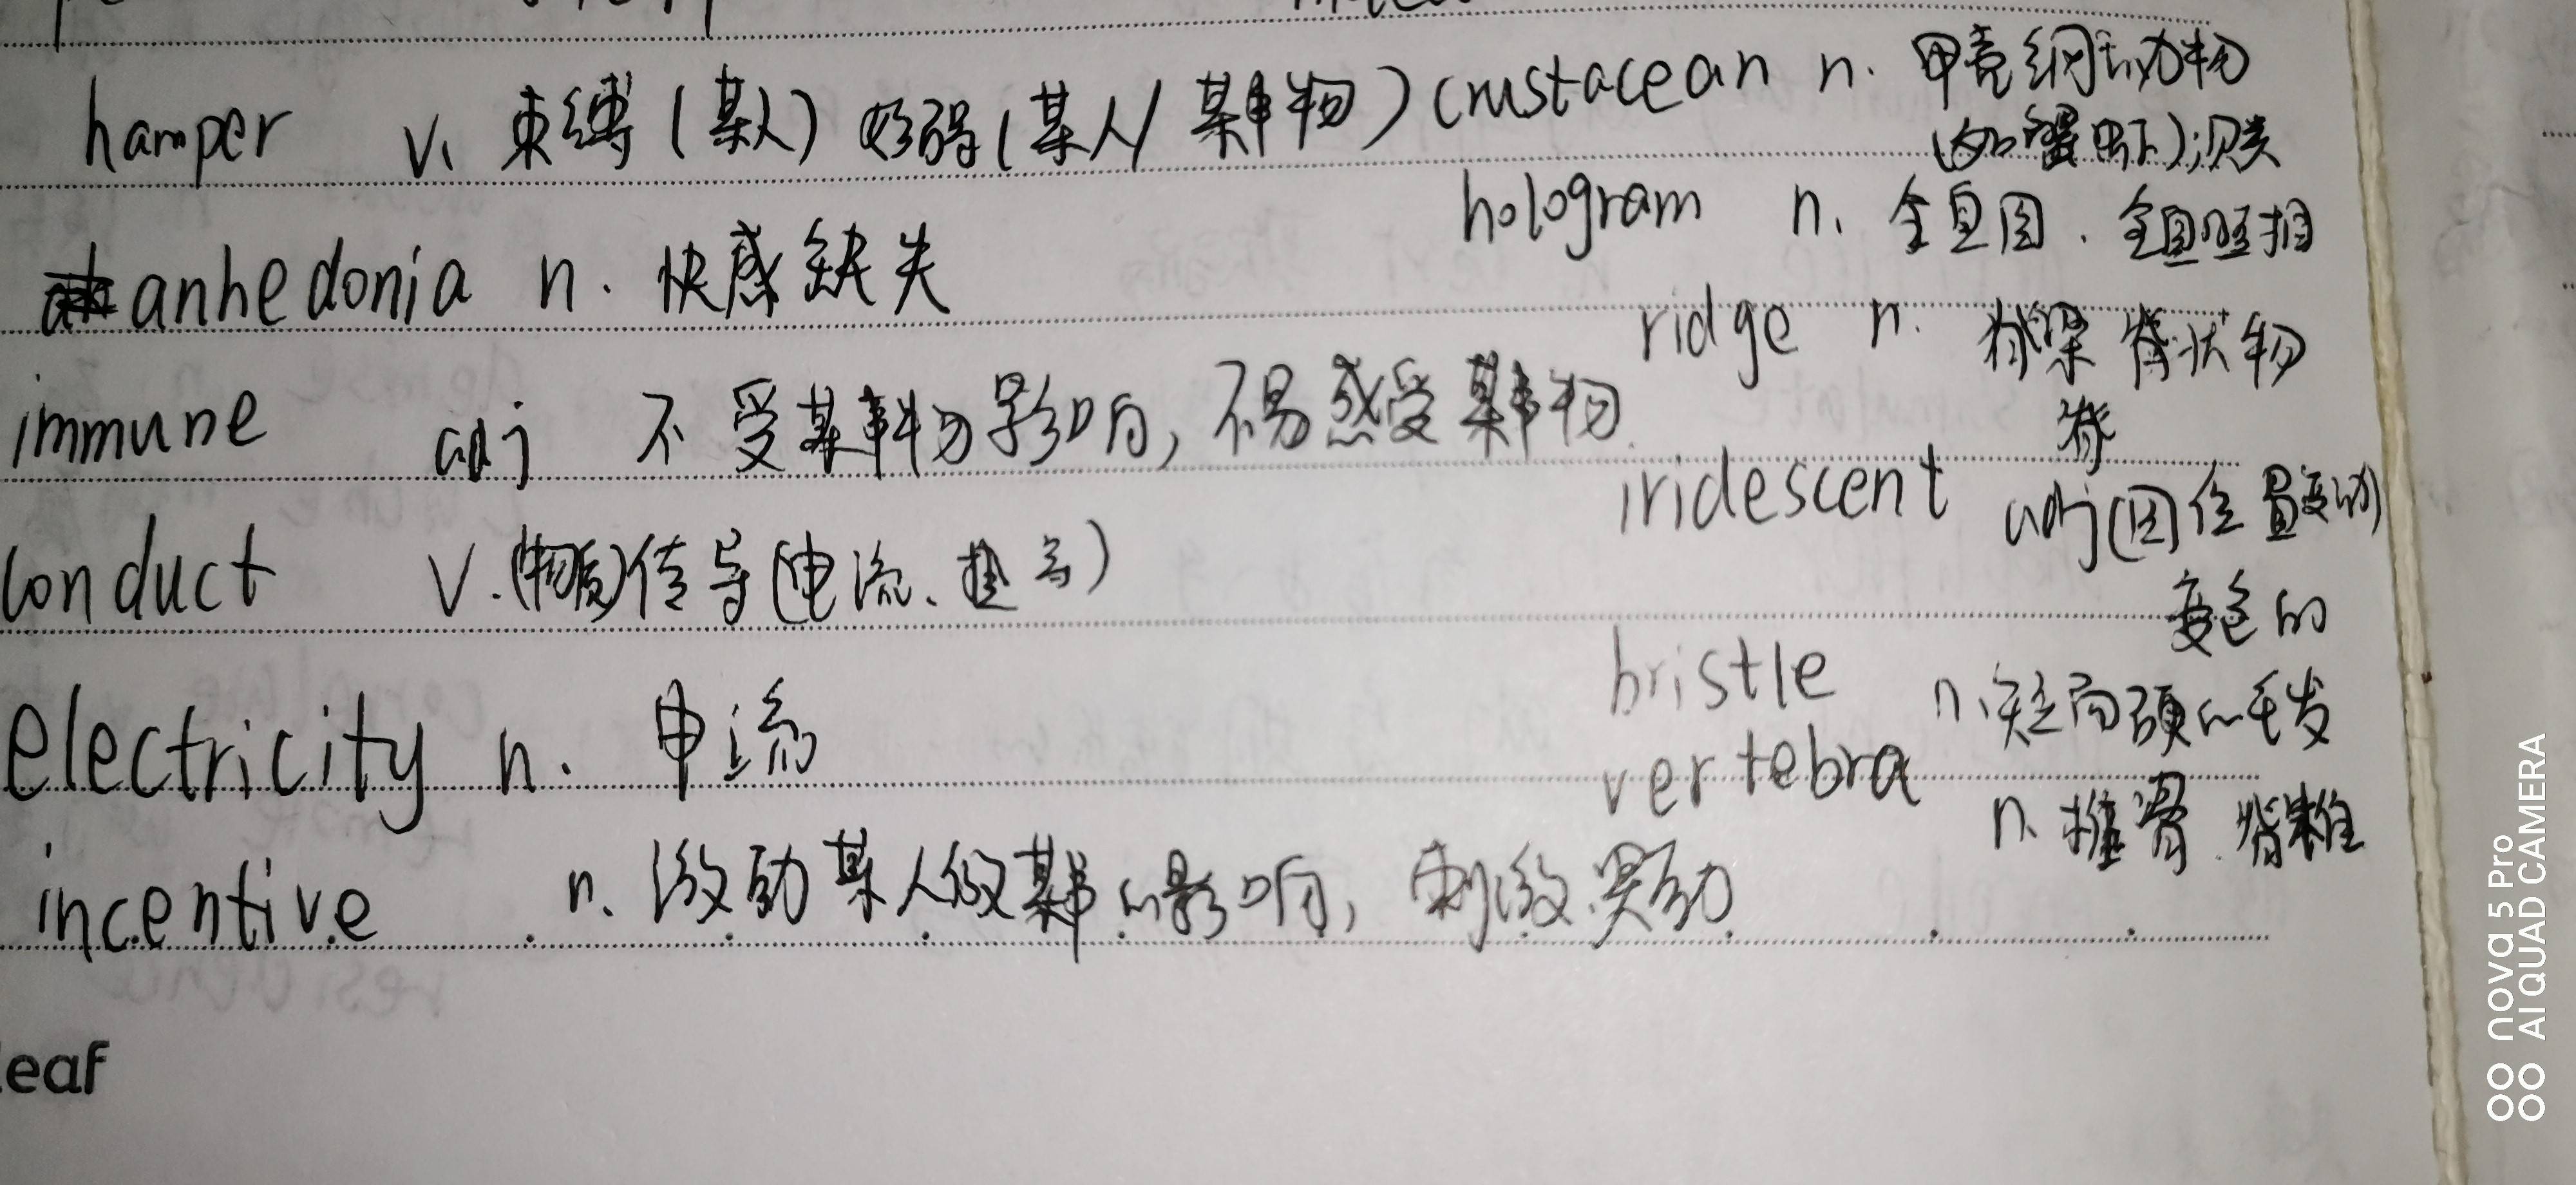 hamper v. 束缚(某人) 妨碍(某人/某事物)
anhedonia n. 快感缺失
immune adj 不受某事物影响,不易感受某事物.
conduct v.(物质)传导(电流、热等)
electricity n. 电流
incentive n. 激励某人做某事的影响,刺激.奖励
crustacean n. 甲壳纲动物
(如蟹虾);贝类
hologram n. 全息图.全息照相
ridge n. 脊梁 脊状物
脊
iridescent adj(因位置变动)
变色的
bristle n.短而硬的毛发
vertebra n.椎骨.脊椎
leaf
nova 5 Pro
AI QUAD CAMERA